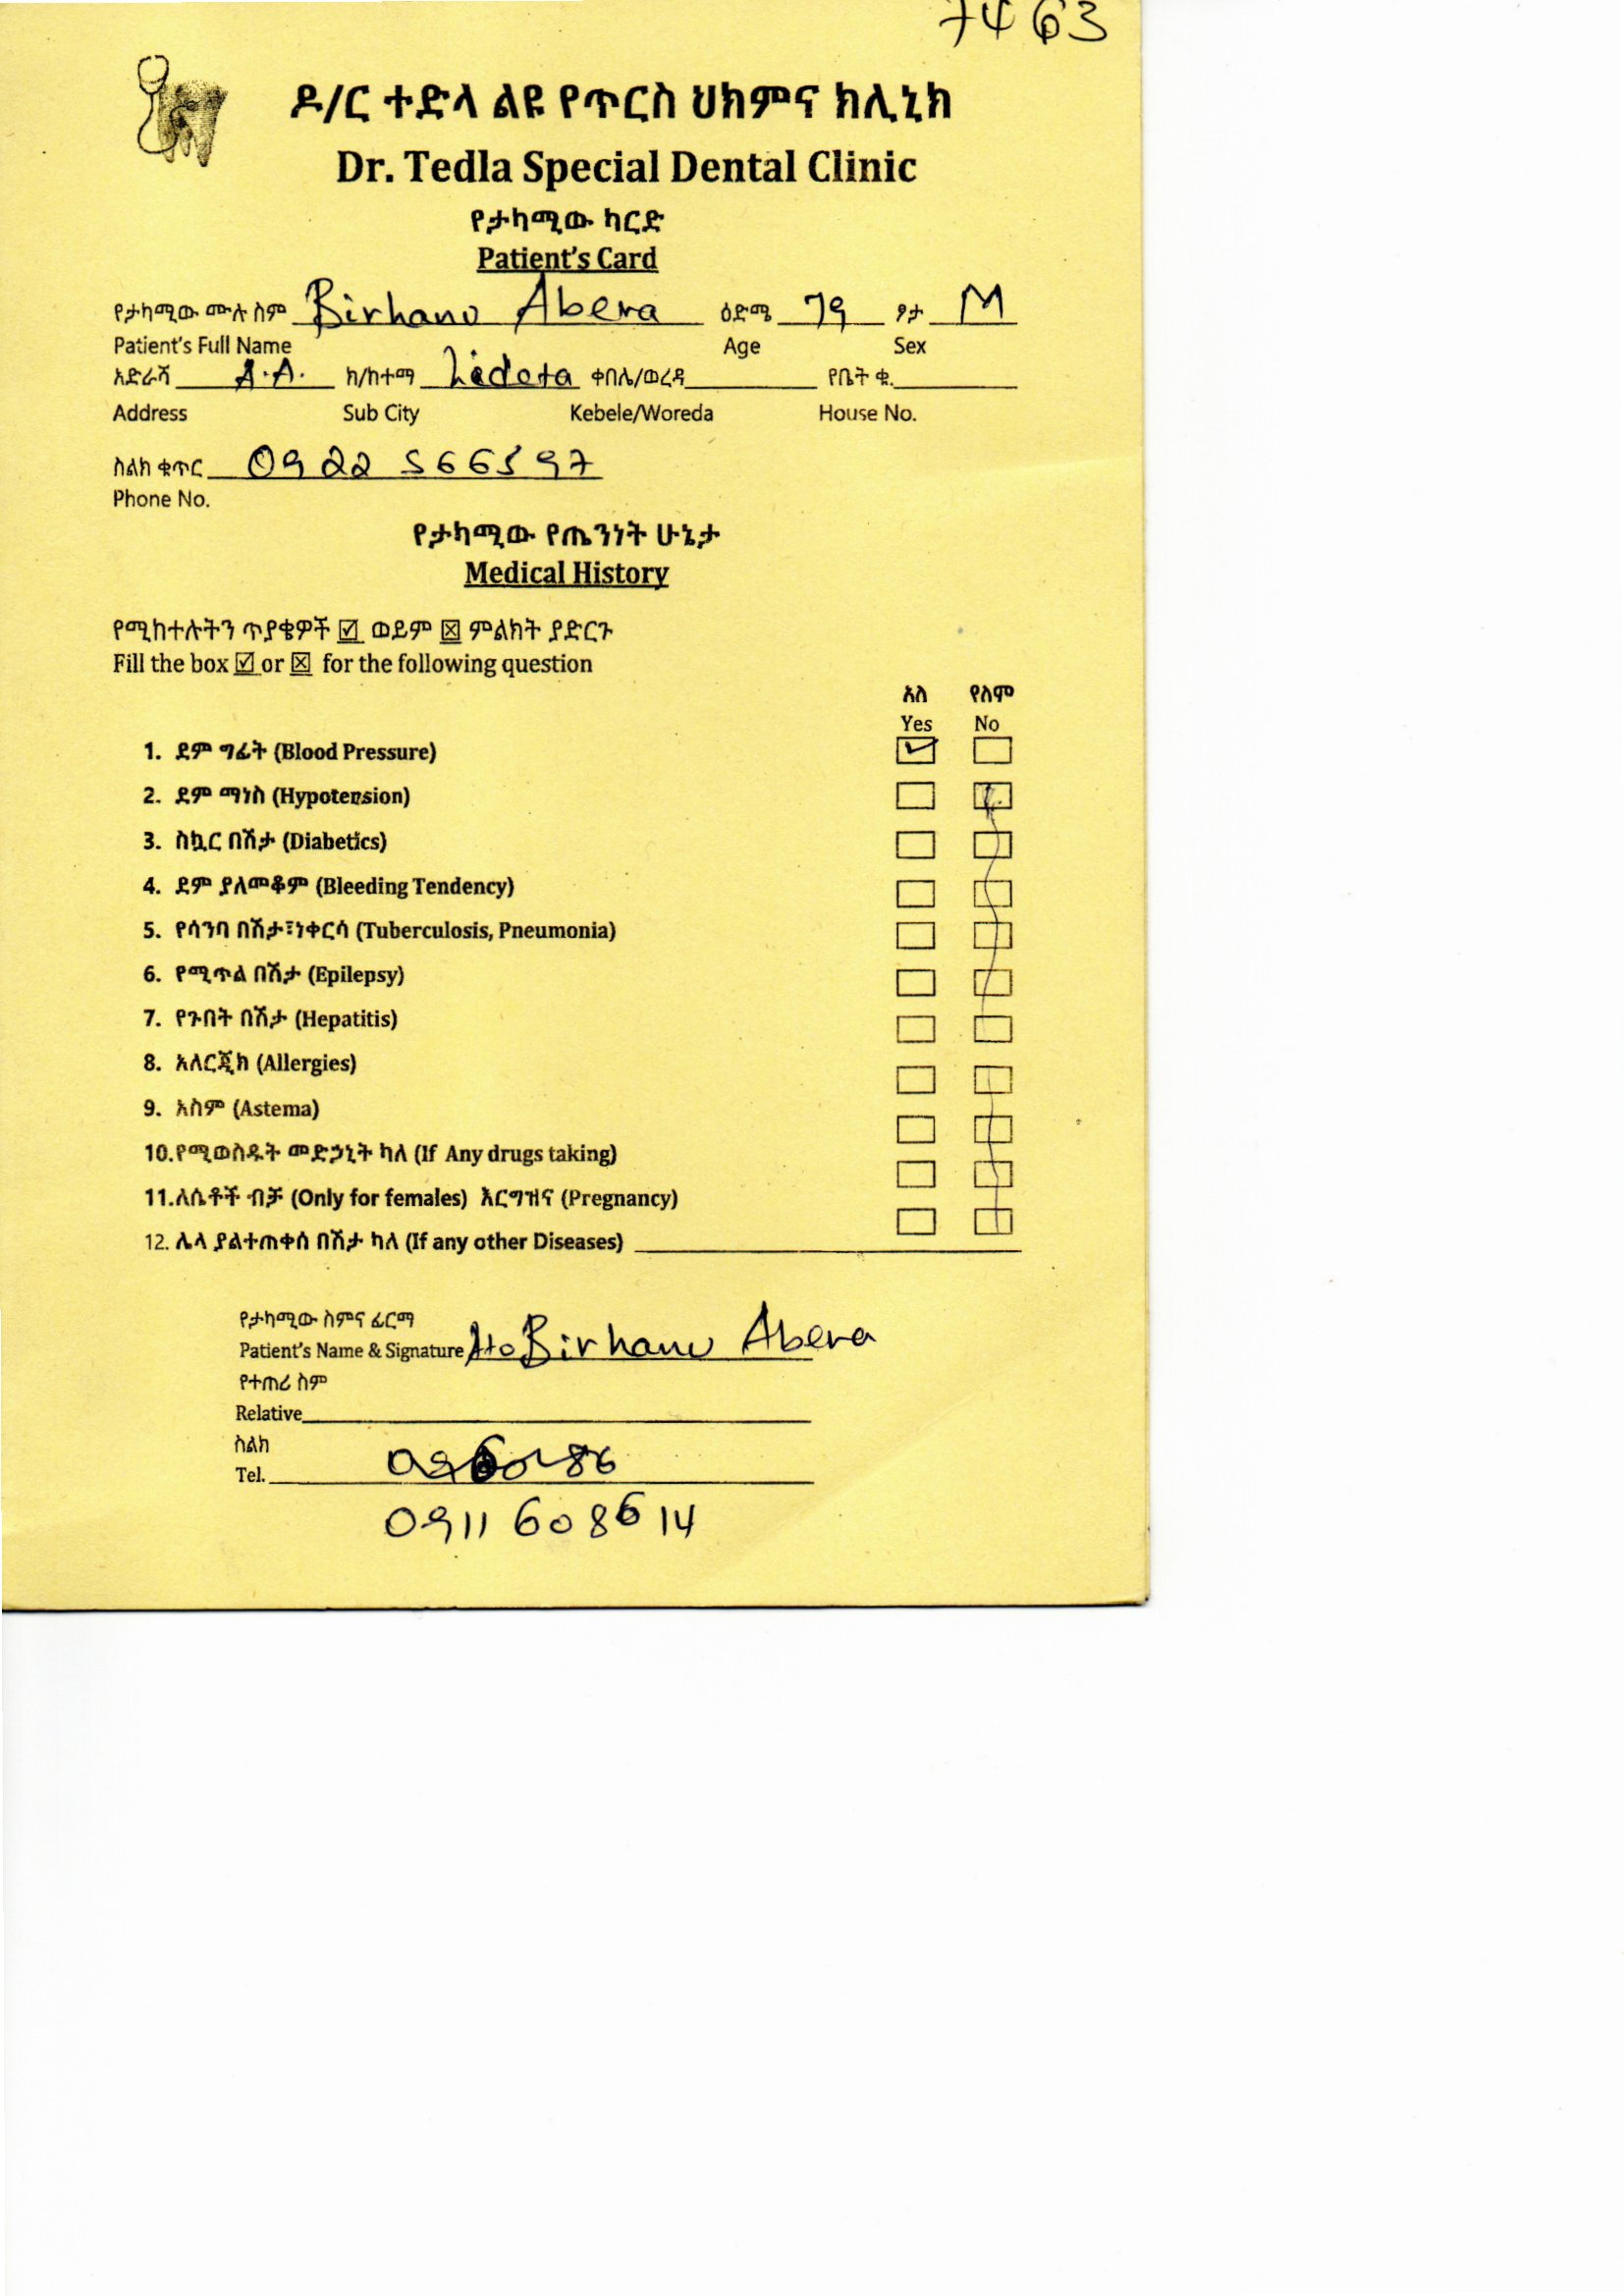 7463
ዶ/ር ተድላ ልዩ የጥርስ ህክምና ክሊኒክ
Dr. Tedla Special Dental Clinic
የታካሚው ካርድ
Patient's Card
የታካሚው ሙሉ ስም Birhanu Abera ዕድሜ 79 ፆታ M
Patient's Full Name Age Sex
አድራሻ A.A. ክ/ከተማ Lideta ቀበሌ/ወረዳ የቤት ቁ.
Address Sub City Kebele/Woreda House No.
ስልክ ቁጥር 0922 566597
Phone No.
የታካሚው የጤንነት ሁኔታ
Medical History
የሚከተሉትን ጥያቄዎች ☑ ወይም ☒ ምልክት ያድርጉ
Fill the box ☑ or ☒ for the following question
አለ የለም
Yes No
1. ደም ግፊት (Blood Pressure) ☑ ☐
2. ደም ማነስ (Hypotension)
3. ስኳር በሽታ (Diabetics)
4. ደም ያለመቆም (Bleeding Tendency)
5. የሳንባ በሽታ፣ነቀርሳ (Tuberculosis, Pneumonia)
6. የሚጥል በሽታ (Epilepsy)
7. የጉበት በሽታ (Hepatitis)
8. አለርጂክ (Allergies)
9. አስም (Astema)
10.የሚወስዱት መድኃኒት ካለ (If Any drugs taking)
11.ለሴቶች ብቻ (Only for females) እርግዝና (Pregnancy)
12. ሌላ ያልተጠቀሰ በሽታ ካለ (If any other Diseases)
የታካሚው ስምና ፊርማ
Patient's Name & Signature Ato Birhanu Abera
የተጠሪ ስም
Relative
ስልክ
Tel.
0911 608614